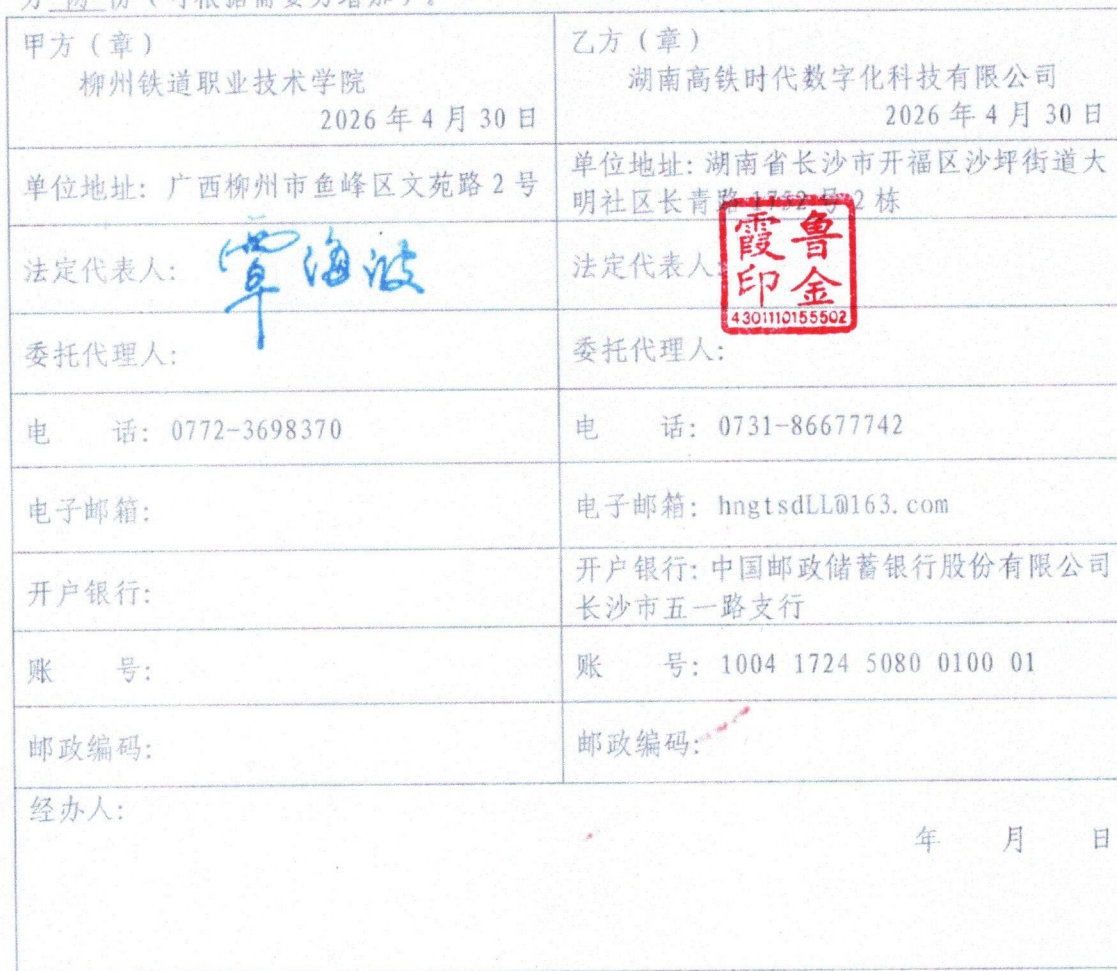 甲方（章）
柳州铁道职业技术学院
2026年4月30日
乙方（章）
湖南高铁时代数字化科技有限公司
2026年4月30日
单位地址: 广西柳州市鱼峰区文苑路2号
单位地址: 湖南省长沙市开福区沙坪街道大
明社区长青路1752号2栋
法定代表人: 覃海波
法定代表人:
霞鲁
印金
4301110155502
委托代理人:
委托代理人:
电 话: 0772-3698370
电 话: 0731-86677742
电子邮箱:
电子邮箱: hngtsdLL@163.com
开户银行:
开户银行: 中国邮政储蓄银行股份有限公司
长沙市五一路支行
账 号:
账 号: 1004 1724 5080 0100 01
邮政编码:
邮政编码:
经办人:
年 月 日